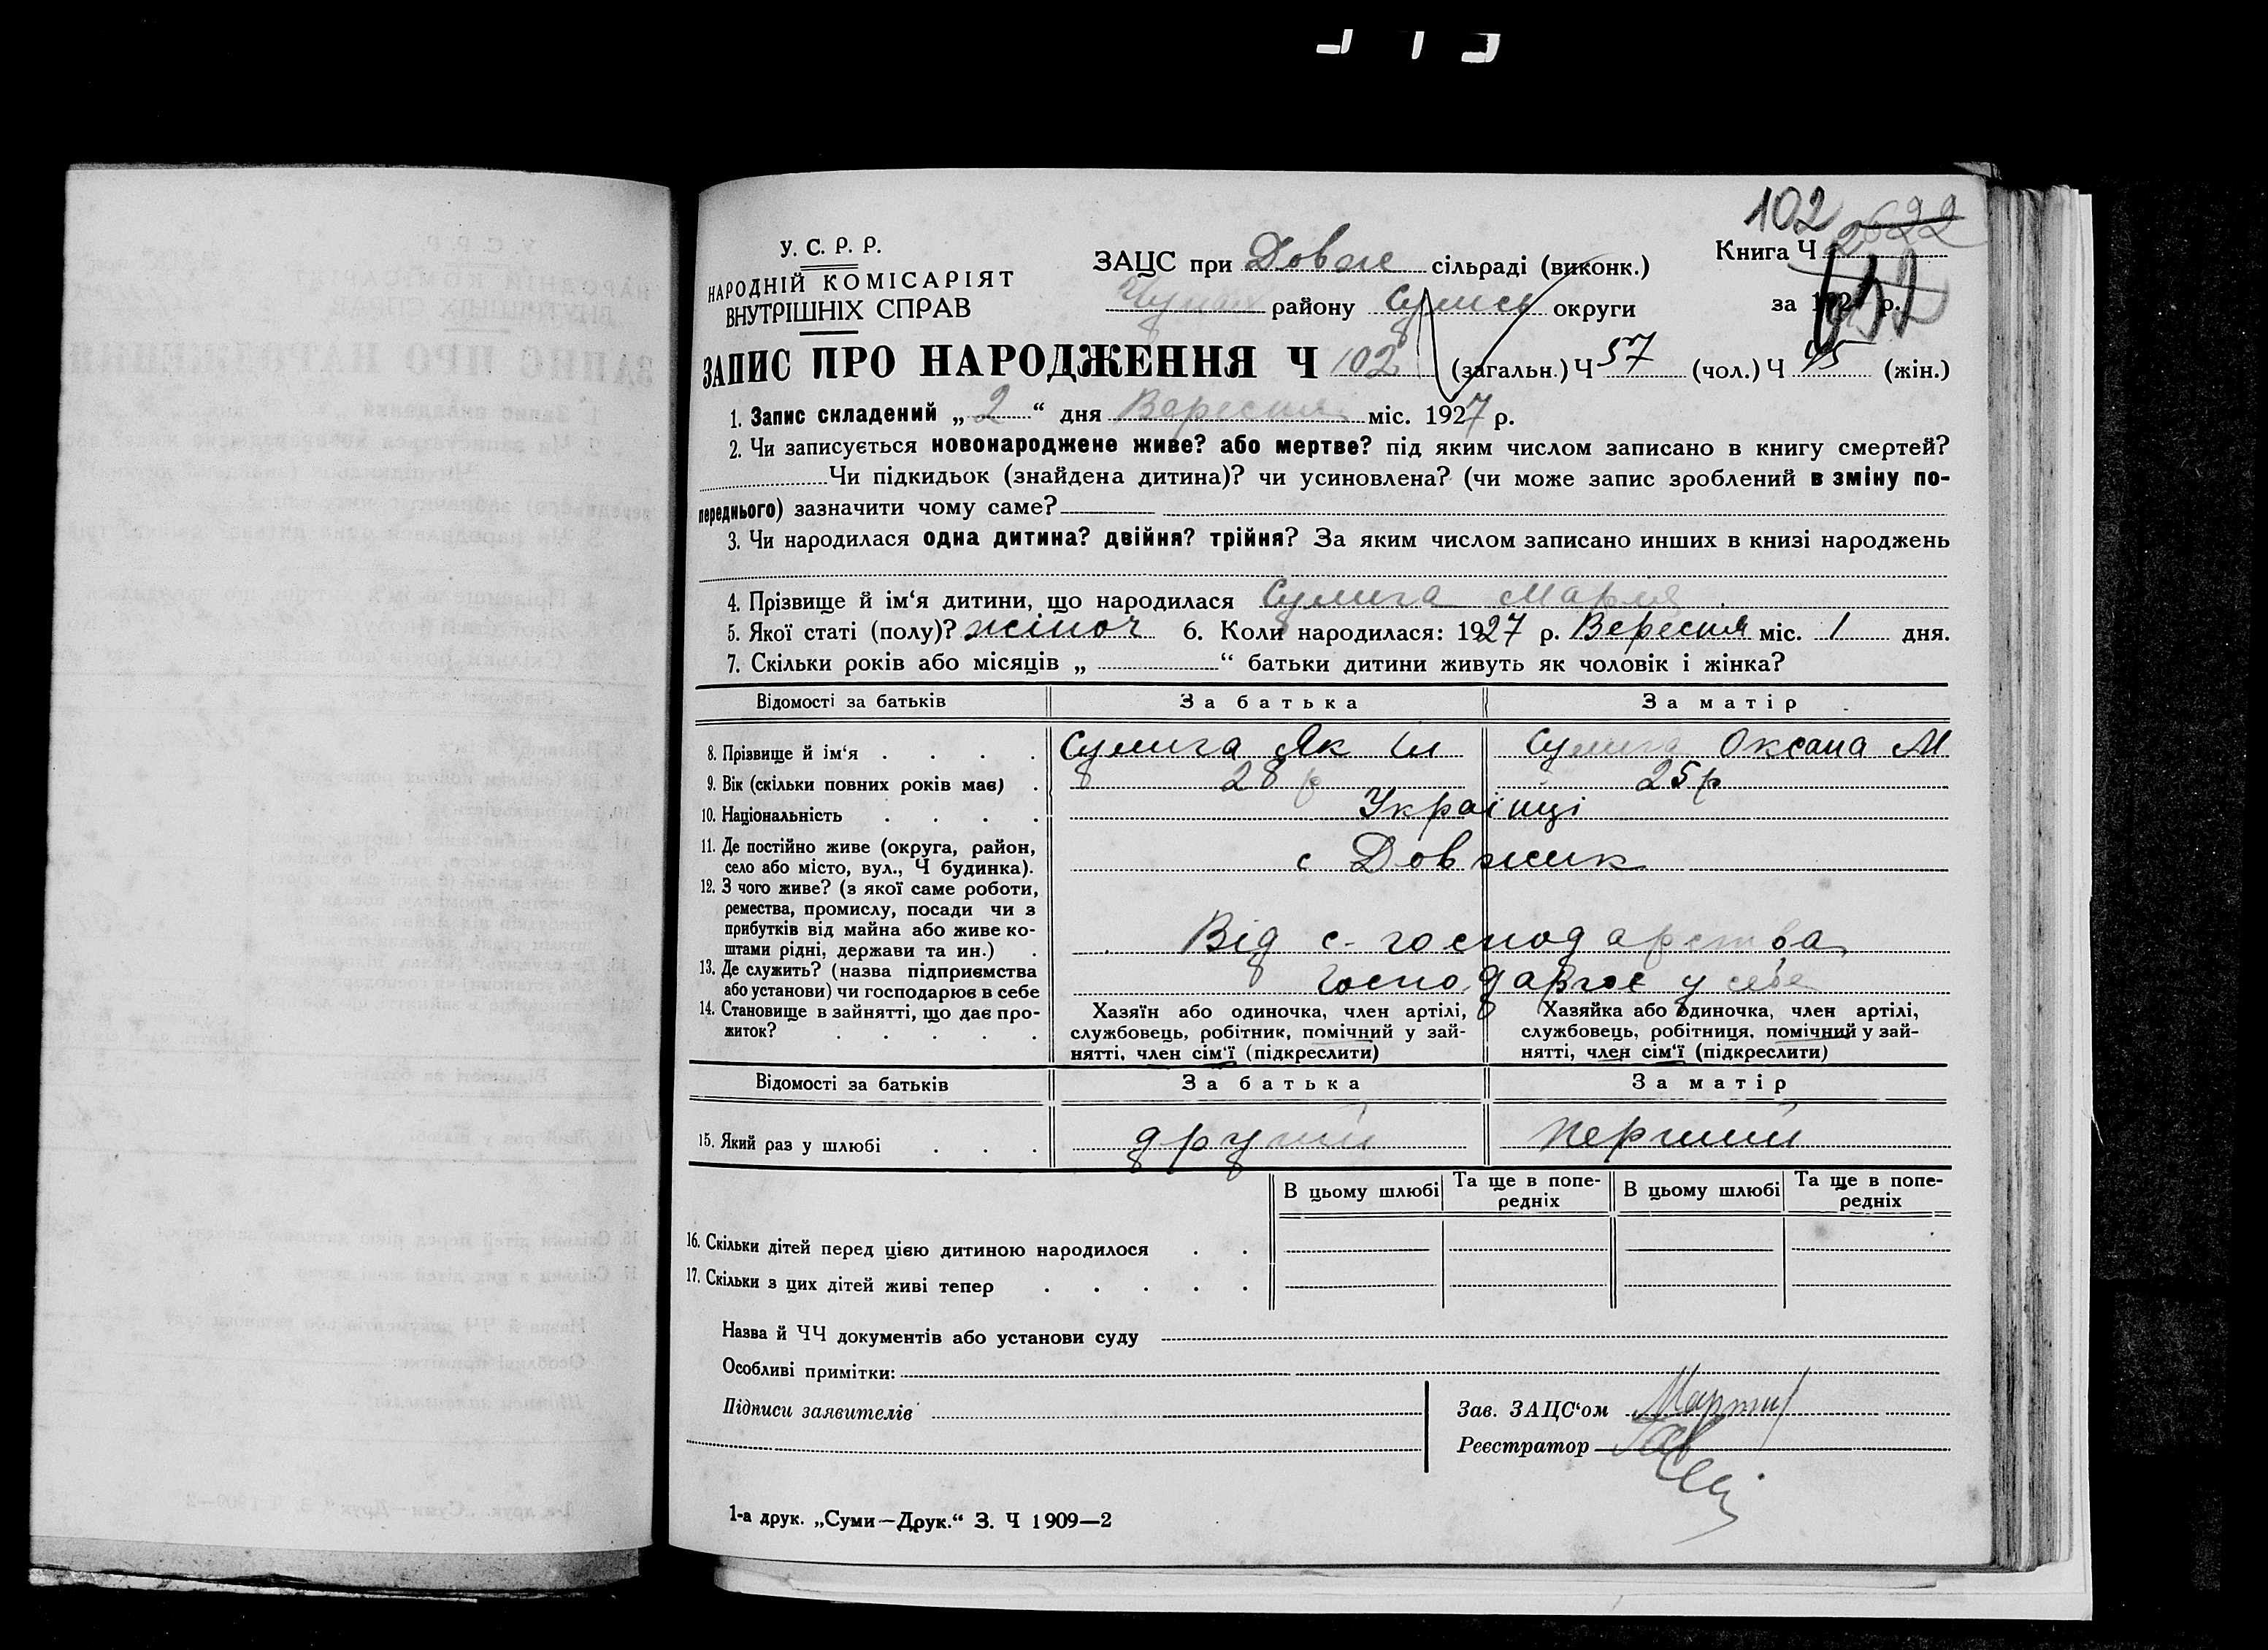 102 2622
У. С. Р. Р.
НАРОДНІЙ КОМІСАРІЯТ
ВНУТРІШНІХ СПРАВ
ЗАЦС при Довж сільраді (виконк.)
району Сумськ округи
Книга Ч
за 192 р.
ЗАПИС ПРО НАРОДЖЕННЯ Ч 102 (загальн.) Ч 57 (чол.) Ч 45 (жін.)
1. Запис складений „ 2 “ дня Вересня міс. 1927 р.
2. Чи записується новонароджене живе? або мертве? під яким числом записано в книгу смертей?
Чи підкидьок (знайдена дитина)? чи усиновлена? (чи може запис зроблений в зміну по-
переднього) зазначити чому саме?
3. Чи народилася одна дитина? двійня? трійня? За яким числом записано инших в книзі народжень
4. Прізвище й ім‘я дитини, що народилася Сумига Мария
5. Якої статі (полу)? жіноч 6. Коли народилася: 1927 р. Вересня міс. 1 дня.
7. Скільки років або місяців „ “ батьки дитини живуть як чоловік і жінка?
Відомості за батьків За батька За матір
8. Прізвище й ім‘я . . . . Сумига Як Сумига Оксана М
9. Вік (скільки повних років має) . 28 р 25 р
10. Національність . . . . Українці
11. Де постійно живе (округа, район,
село або місто, вул., Ч будинка). с Довжик
12. З чого живе? (з якої саме роботи,
ремества, промислу, посади чи з
прибутків від майна або живе ко-
штами рідні, держави та ин.) . Від с-господарства
13. Де служить? (назва підприємства
або установи) чи господарює в себе господарює у себе
14. Становище в зайнятті, що дає про-
житок? . . . . .
Хазяїн або одиночка, член артілі,
службовець, робітник, помічний у зай-
нятті, член сім‘ї (підкреслити)
Хазяйка або одиночка, член артілі,
службовець, робітниця, помічний у зай-
нятті, член сім‘ї (підкреслити)
Відомості за батьків За батька За матір
15. Який раз у шлюбі . . . другий перший
В цьому шлюбі Та ще в попе-
редніх В цьому шлюбі Та ще в попе-
редніх
16. Скільки дітей перед цією дитиною народилося . .
17. Скільки з цих дітей живі тепер . . . . .
Назва й ЧЧ документів або установи суду
Особливі примітки:
Підписи заявителів
Зав. ЗАЦС‘ом
Реєстратор
1-а друк. „Суми—Друк.“ З. Ч 1909—2